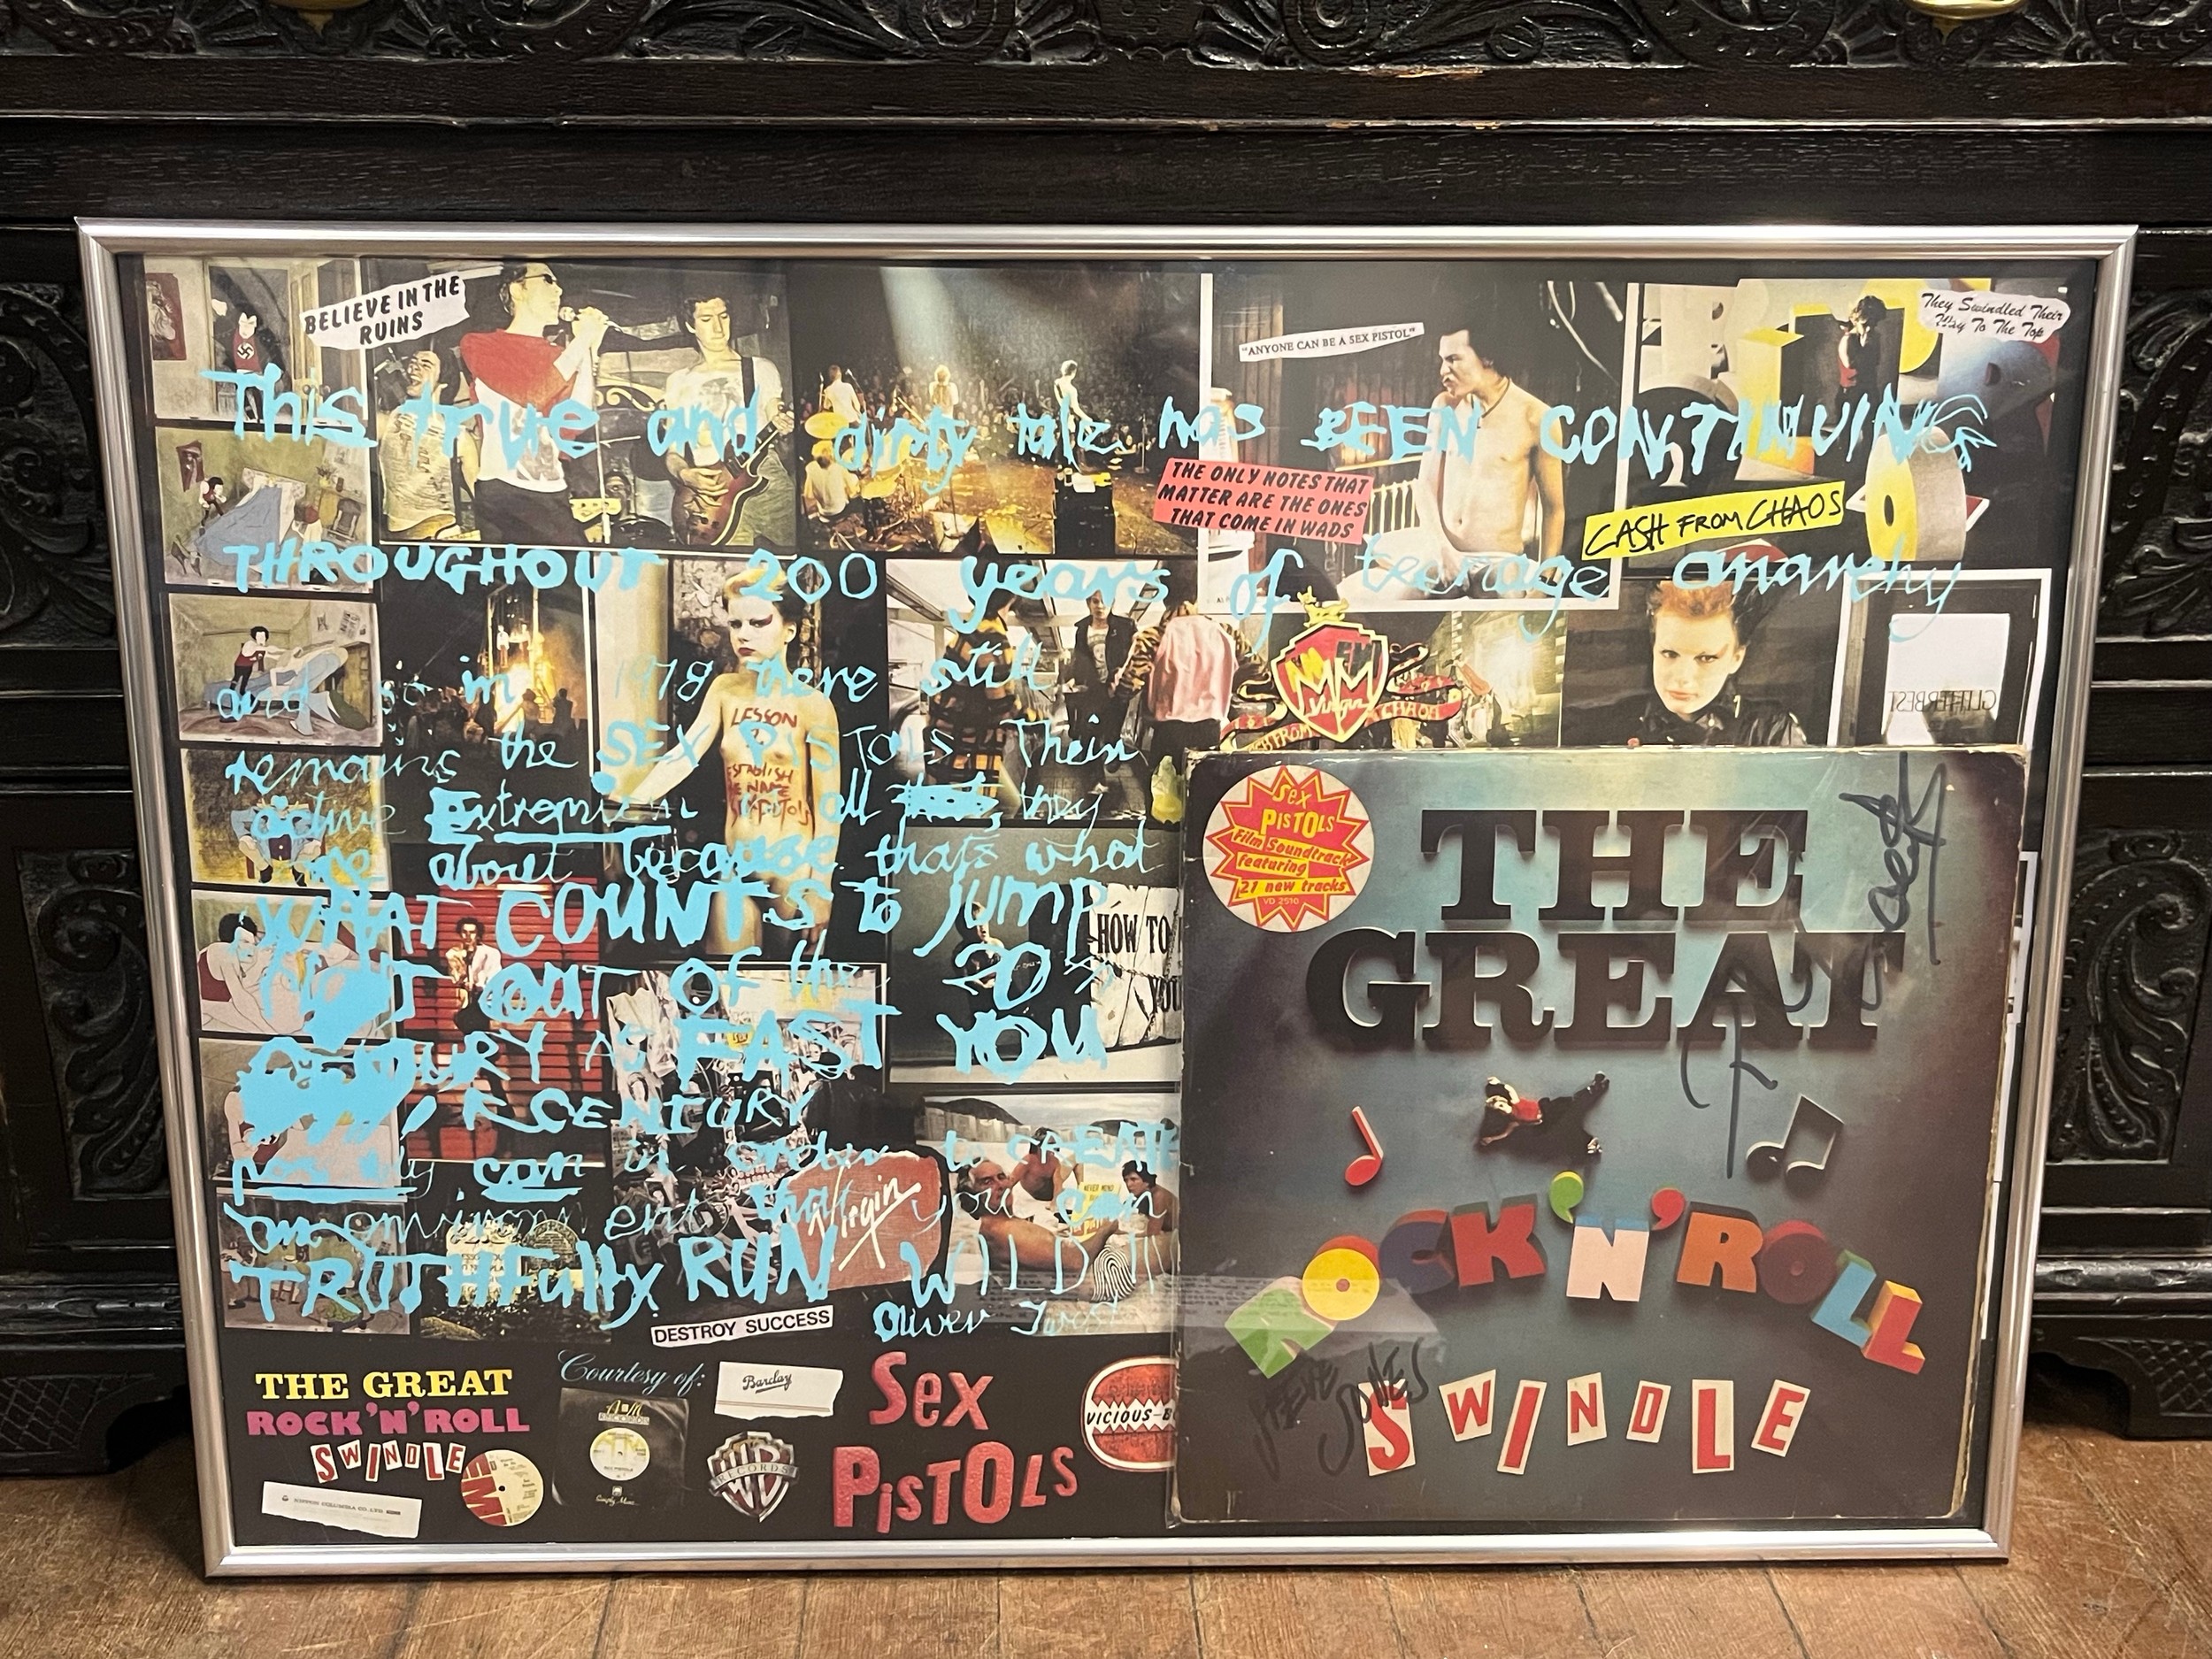 BELIEVE IN THE
RUINS
"ANYONE CAN BE A SEX PISTOL"
They Swindled Their
Way To The Top
This true and dirty tale has BEEN CONTINUING
THE ONLY NOTES THAT
MATTER ARE THE ONES
THAT COME IN WADS
CASH FROM CHAOS
THROUGHOUT 200 years of teenage anarchy
and so in 1978 there still
remains the SEX PISTOLS. Their
active Extremism all they
about because thats what
WHAT COUNTS to Jump
OUT OF the 20th
CENTURY AS FAST YOU
CENTURY
can in order to CREATE
an environment that you can
TRUTHFully RUN WILD IN
Oliver Twist
LESSON
ESTABLISH
NAME
Virgin
GLITTERBEST
HOW TO
YOU
Virgin
DESTROY SUCCESS
Sex
PISTOLS
Film Soundtrack
featuring
21 new tracks
VD 2510
THE
GREAT
ROCK 'N' ROLL
SWINDLE
STEVE
JONES
THE GREAT
ROCK 'N' ROLL
SWINDLE
Courtesy of:
A&M
RECORDS
Barclay
WB
RECORDS
Sex
PISTOLS
VICIOUS-B
NIPPON COLUMBIA CO. LTD.
EMI